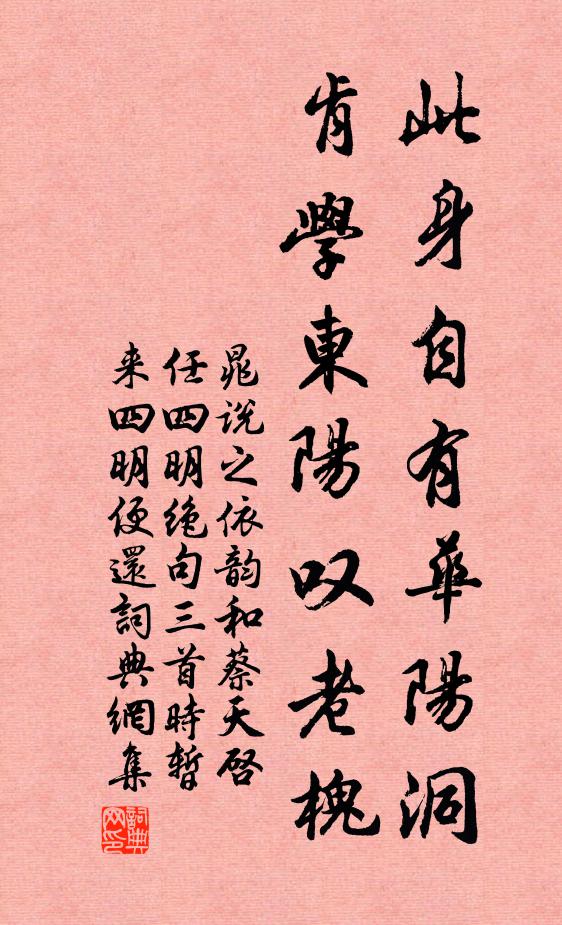 此身自有華陽洞
肯學東陽叹老槐
晁说之依韵和蔡天啓
任四明绝句三首時暫
来四明便還詞典網集
詞典网印